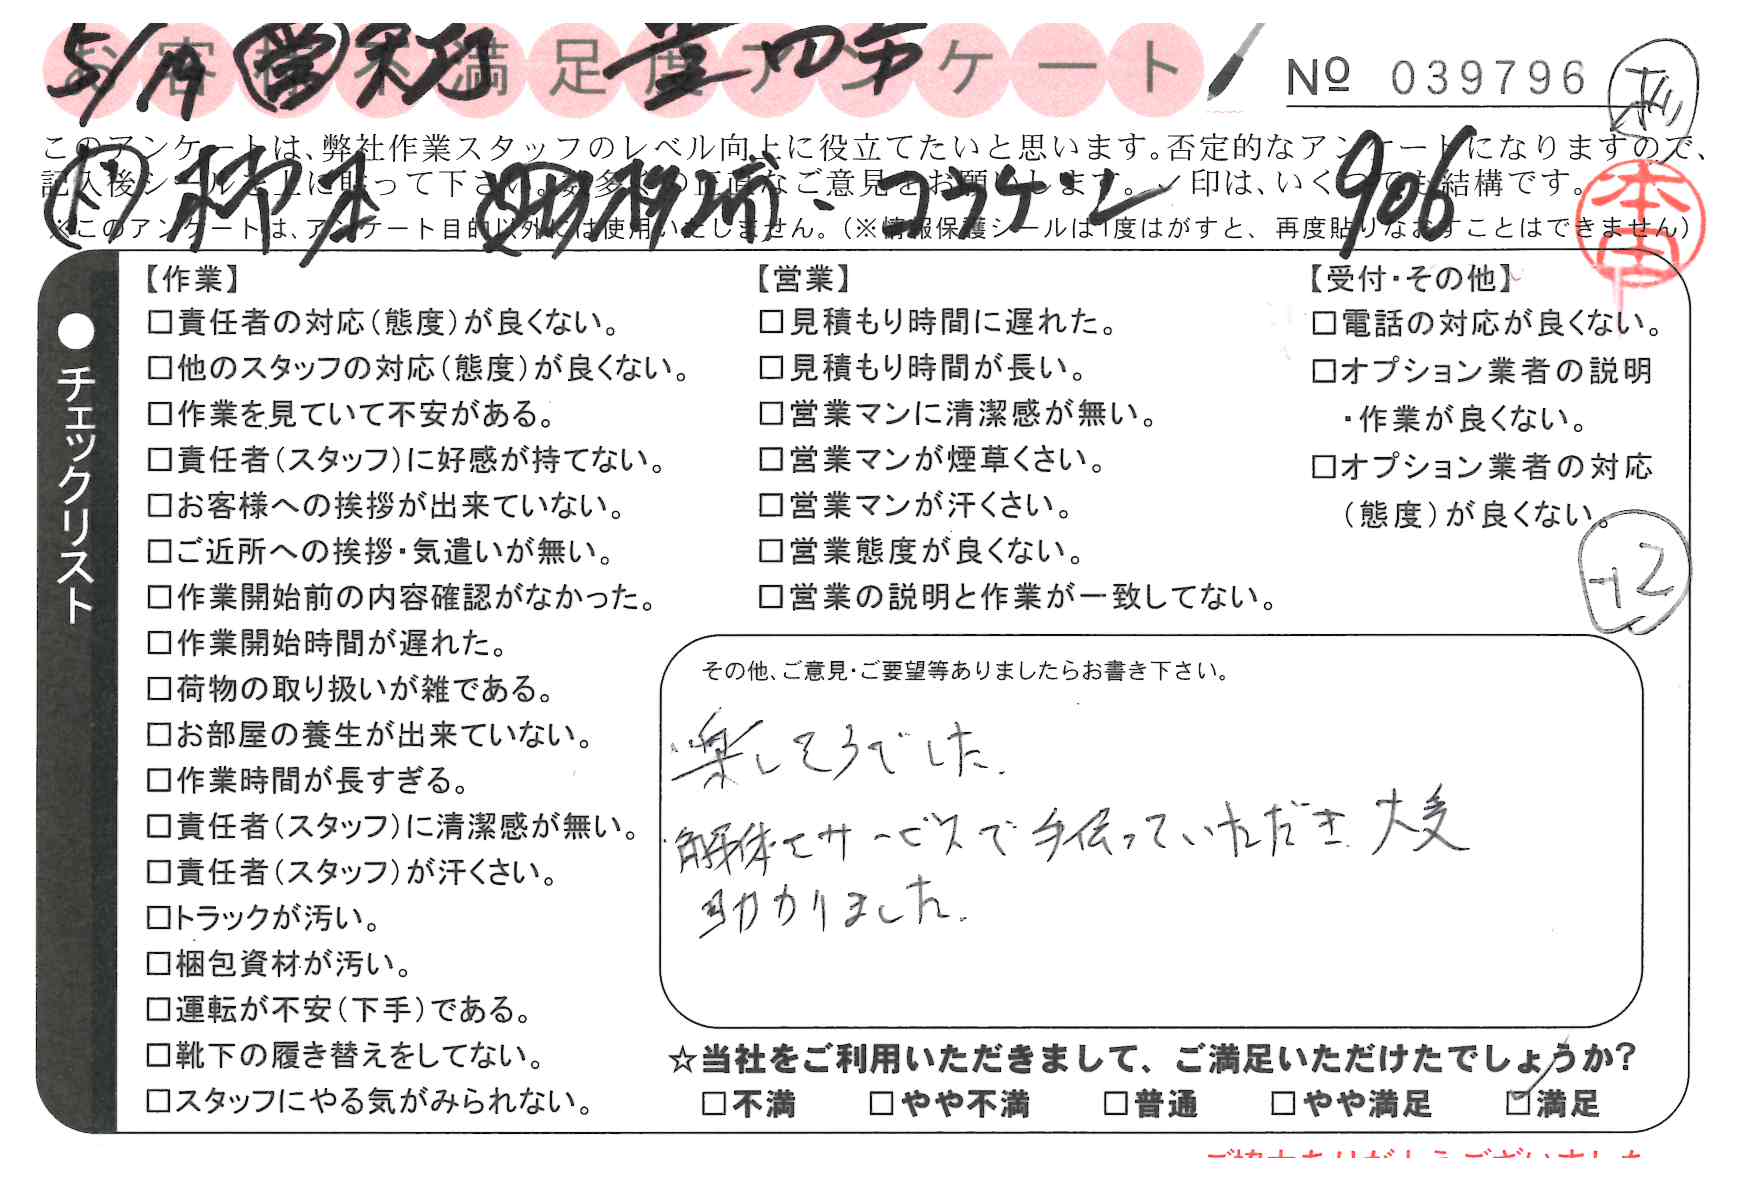 お客様不満足度アンケート
№ 039796
このアンケートは、弊社作業スタッフのレベル向上に役立てたいと思います。否定的なアンケートになりますので、
906
※このアンケートは、アンケート目的以外には使用いたしません。(※情報保護シールは1度はがすと、再度貼りなおすことはできません)
チェックリスト
【作業】
□責任者の対応(態度)が良くない。
□他のスタッフの対応(態度)が良くない。
□作業を見ていて不安がある。
□責任者(スタッフ)に好感が持てない。
□お客様への挨拶が出来ていない。
□ご近所への挨拶・気遣いが無い。
□作業開始前の内容確認がなかった。
□作業開始時間が遅れた。
□荷物の取り扱いが雑である。
□お部屋の養生が出来ていない。
□作業時間が長すぎる。
□責任者(スタッフ)に清潔感が無い。
□責任者(スタッフ)が汗くさい。
□トラックが汚い。
□梱包資材が汚い。
□運転が不安(下手)である。
□靴下の履き替えをしてない。
□スタッフにやる気がみられない。
【営業】
□見積もり時間に遅れた。
□見積もり時間が長い。
□営業マンに清潔感が無い。
□営業マンが煙草くさい。
□営業マンが汗くさい。
□営業態度が良くない。
□営業の説明と作業が一致してない。
【受付・その他】
□電話の対応が良くない。
□オプション業者の説明
・作業が良くない。
□オプション業者の対応
(態度)が良くない。
+2
その他、ご意見・ご要望等ありましたらお書き下さい。
楽しそうでした.
解体もサービスで手伝っていただき 大変
助かりました.
☆当社をご利用いただきまして、ご満足いただけたでしょうか?
□不満 □やや不満 □普通 □やや満足 ☑満足
ご協力ありがとうございました